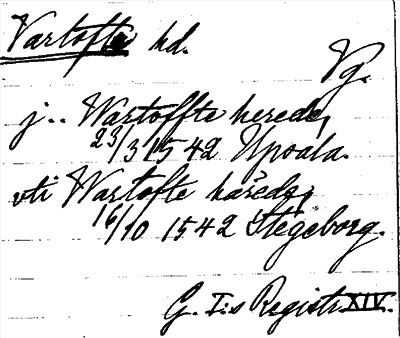 Vartofta hd.
Vg.
j.. Wartoffte herede,
23/3 1542 Upsala.
vti Wartofte häredz,
16/10 1542 Stegeborg.
G. I:s Registr. XIV.